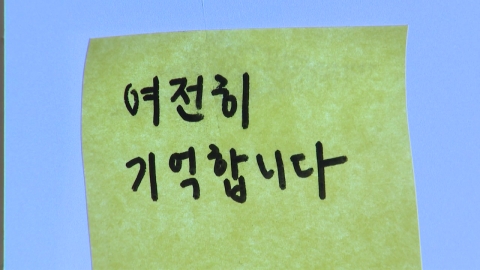 여전히
기억합니다